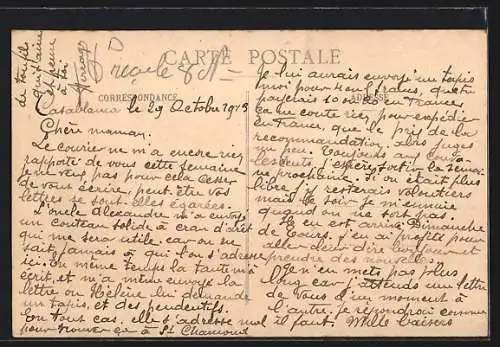 CARTE POSTALE
CORRESPONDANCE
ADRESSE
Casablanca le 29 Octobre 1913
Chère maman.
Le courrier ne m'a encore rien
rapporté de vous cette semaine
Je ne veux pas pour cela cesser
de vous écrire, peut être vos
lettres se sont elles égarées.
L'oncle Alexandre m'a envoyé
un couteau solide à cran d'arrêt
qui me sera utile car on ne
sait jamais à qui l'on s'adresse
ici. En même temps la tante m'a
écrit, et m'a même envoyé la
lettre où Hélène lui demande
un tapis, et des pendentifs.
En tout cas, elle s'adresse mal
pour trouver ça à St Chamond
Je lui aurais envoyé un tapis
moi pour francs, que tu
paierais 10 en France
ça me coûte rien pour expédier
en France, que le prix de la
recommandation, alors juges
un peu. Toujours aux
prochaine. Si on était plus
libre j'y resterais volontiers
mais le soir je m'ennuie
quand on ne sort pas.
Il en est arrivé Dimanche
de j'en ai profité pour
aller leur dire bonjour et
prendre des nouvelles.
Je n'en mets pas plus
long car j'attends une lettre
de vous d'un moment à
l'autre, je répondrai comme
il faut. Mille baisers